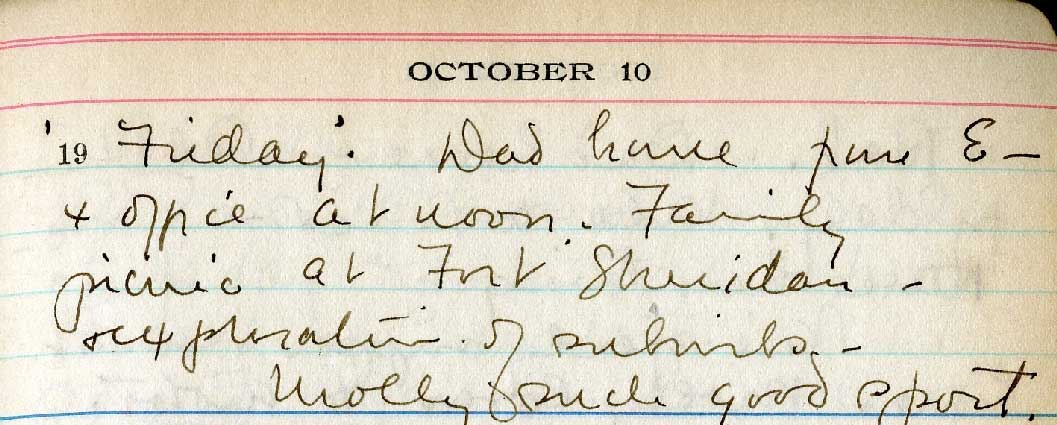 OCTOBER 10
'19 Friday. Dad home from E—
+ office at noon. Family
picnic at Fort Sheridan —
+ exploration of suburbs —
Molly such good sport.